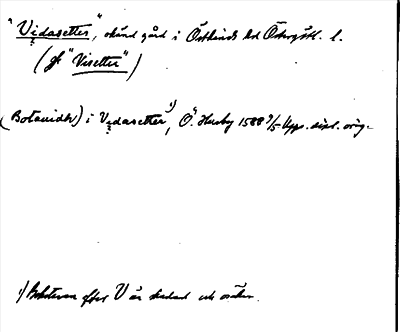 "Vidasetter", okänd gård i Östkinds hd Östergötl. l.
(jfr "Visetter")
(Botanidh) i Vidasetter ¹), Ö. Husby 1588 9/5 Upps. dipl. orig.
¹) Bokstaven efter V är skadad och osäker.